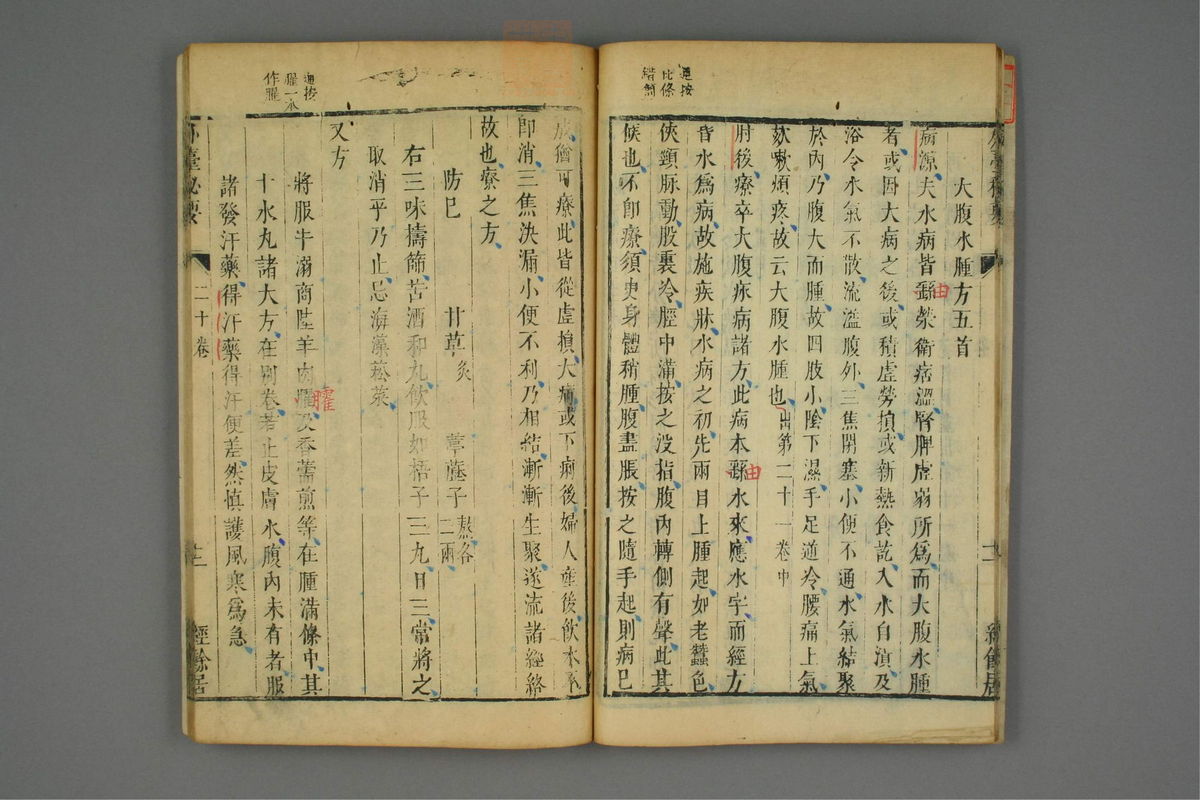 大腹水腫方五首
病源夫水病皆繇榮衛痞澀腎脾虛弱所為而大腹水腫
者或因大病之後或積虛勞損或新熱食訖入水自漬及
浴令水氣不散流溢腹外三焦閉塞小便不通水氣結聚
於內乃腹大而腫故四肢小陰下濕手足逆冷腰痛上氣
欬嗽煩疼故云大腹水腫也出第二十一卷中
由
肘後療卒大腹水病諸方此病本繇水來應水字而經方
由
皆水為病故施疾狀水病之初先兩目上腫起如老蠶色
俠頸脉動股裏冷脛中滿按之没指腹內轉側有聲此其
候也不即療須臾身體稍腫腹盡脹按之隨手起則病已
逈按
此條
錯簡
十二
成猶可療此皆從虛損大痛或下痢後婦人產後飲水不
即消三焦決漏小便不利乃相結漸漸生聚遂流諸經絡
故也療之方
防巳 甘草炙 葶藶子熬各二兩
右三味擣篩苦酒和丸飲服如梧子三九日三當將之
取消乎乃止忌海藻菘菜
又方
將服牛溺商陸羊肉臛及香薷煎等在腫滿條中其
臛
十水丸諸大方在別卷若止皮膚水腹內未有者服
諸發汗藥得汗藥得汗便差然慎護風寒為急
逈按
臛一本
作臛
外臺秘要
二十卷
十二
經餘居